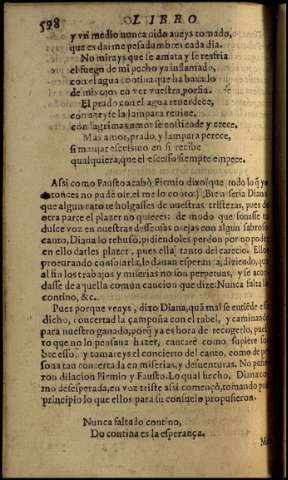 598 LIBRO
y vn medio nunca oido aueys tomado,
que es darme pesadumbres cada dia.
No mirays que se amata y se resfria
el fuego de mi pecho ya inflamado,
con el agua contina que ha baxado
de mis ojos en ver vuestra porfia.
El prado con el agua reuerdece,
con azeyte la lampara reuiue,
con lagrimas amor se enciende y crece.
Mas amor, prado, y lampara perece,
si manjar escessiuo en si recibe
qualquiera, que el excesso siempre empece.
Assi como Fausto acabò, Firmio dixo (que todo lo q̃ ya
entonces no pude oir, el me lo conto): Bien seria Diana
que algun rato te holgasses de nuestras tristezas, pues de
otra parte el plazer no quieres: de modo que sonasse tu
dulce voz en nuestras desseosas orejas con algun sabroso
canto, Diana lo rehusò, pidiendoles perdon por no poder
en ello darles plazer, pues ella tanto del carecia. Ellos
procurando consolarla, le dauan esperança, diziendo, que
al fin los trabajos y miserias no son perpetuas, y se acor-
dasse de aquella comun cancion que dize: Nunca falta lo
contino, &c.
Pues porque veays, dixo Diana, quã mal se entiẽde esse
dicho, concertad la çampoña con el rabel, y caminando
para nuestro ganado, porq̃ ya es hora de recogerlo, pues-
to que no lo pensaua hazer, cantarè como supiere so-
bre esso: y tomareys el concierto del canto, como de per-
sona tan concertada en miserias, y desuenturas. No pusie-
ron dilacion Firmio y Fausto. Lo qual hecho, Diana co-
mo desesperada, en voz triste assi començò, tomando por
principio lo que ellos para su consuelo propusieron.
Nunca falta lo contino,
Do contina es la esperança.